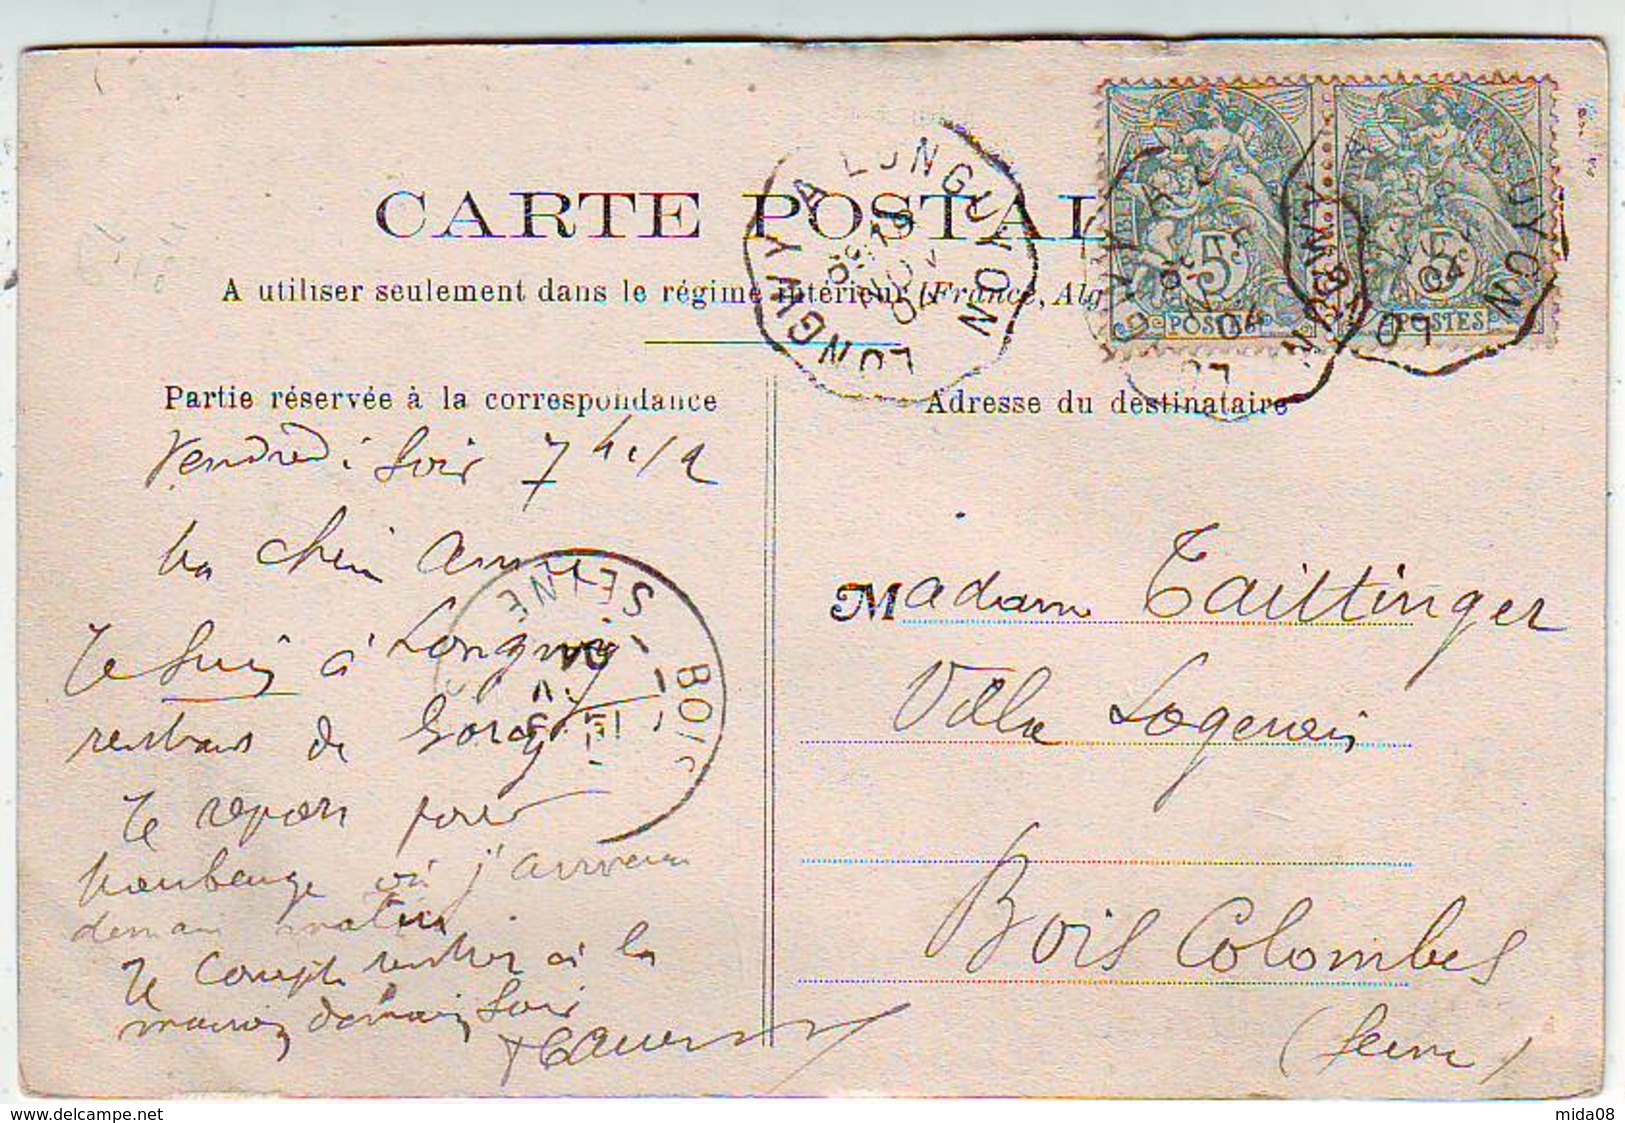 CARTE POSTAL
A utiliser seulement dans le régime intérieur (France, Alg
Partie réservée à la correspondance
Adresse du destinataire
LONGWY A LONGUYON
5c 5c
POSTES POSTES
Vendredi soir 7 h 1/2
Ma chère
Je suis à Longwy
rentrant de Gorcy
Je repars pour
Maubeuge où j'arriverai
demain matin
Je compte rentrer à la
maison demain soir
BOIS SEINE
Madame Taittinger
Villa
Bois Colombes
(Seine)
www.delcampe.net
mida08